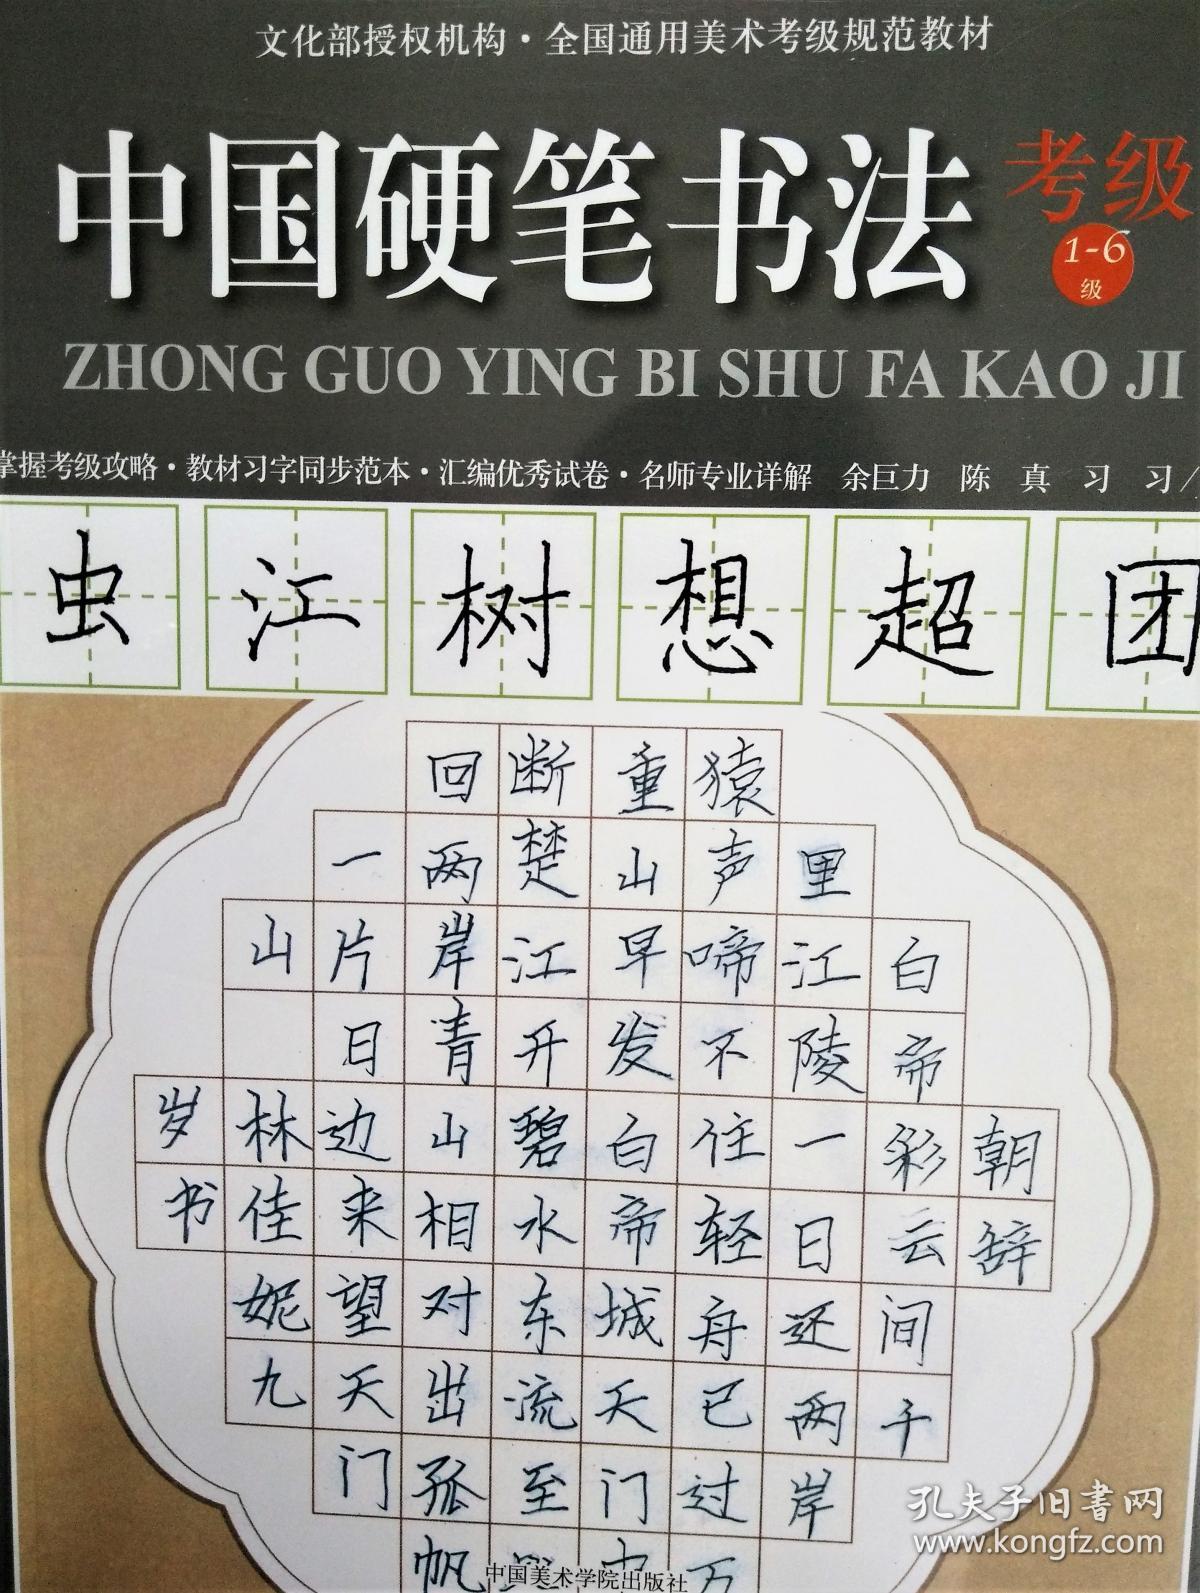 文化部授权机构·全国通用美术考级规范教材
中国硬笔书法 考级
1-6
级
ZHONG GUO YING BI SHU FA KAO JI
掌握考级攻略·教材习字同步范本·汇编优秀试卷·名师专业详解 余巨力 陈真 习习/
虫江树想超团
朝辞
白帝彩云间千
里江陵一日还两岸
猿声啼不住轻舟已过万
重山早发白帝城天门中
断楚江开碧水东流至
回两岸青山相对出孤帆
一片日边来望天门
山 林佳妮九
岁书
中国美术学院出版社
孔夫子旧书网
www.kongfz.com